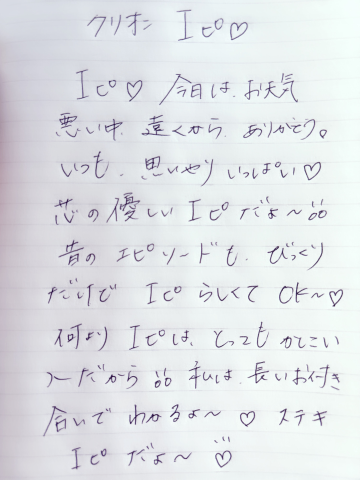 クリオネ Iピ♡
Iピ♡ 今日は、お天気
悪い中、遠くから、ありがとう。
いつも、思いやりいっぱい♡
芯の優しいIピだよ〜
昔のエピソードも、びっくり
だけで Iピらしくて OK〜♡
何より Iピは、とってもかしこい
人だから 私は、長いお付き
合いでわかるよ〜♡ ステキ
Iピだよ〜♡